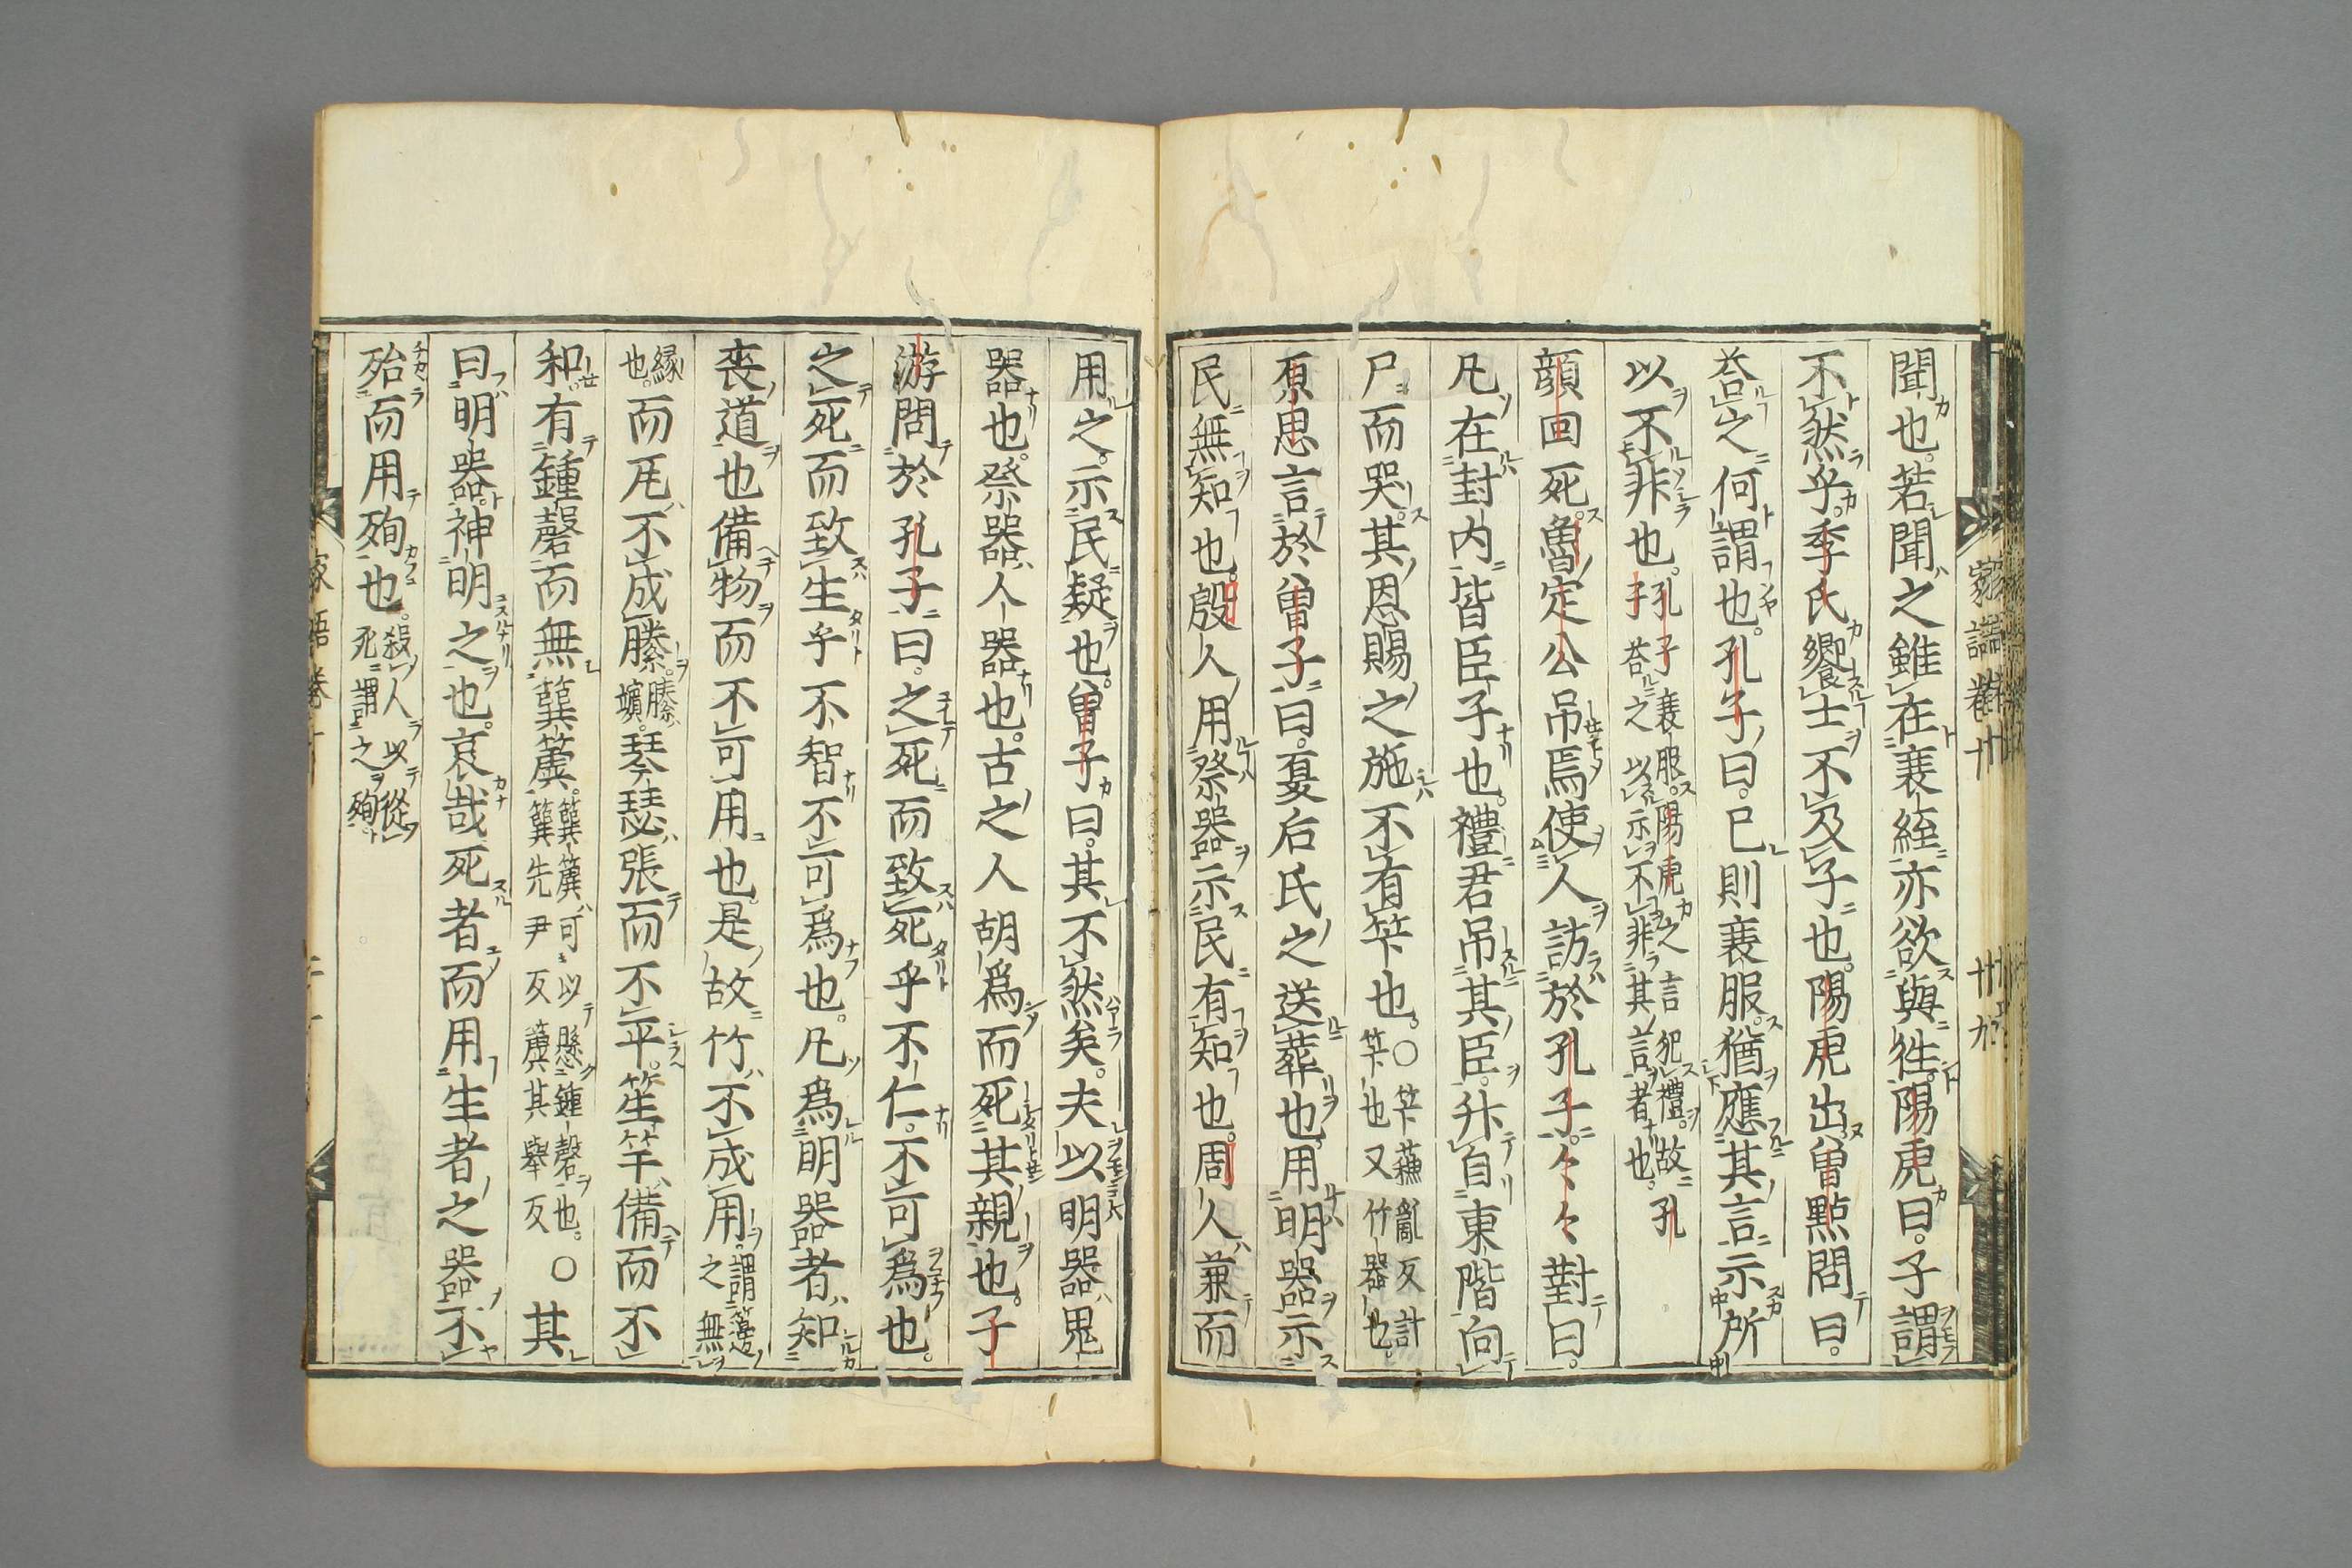 聞也。若聞之雖在衰絰亦欲與徃。陽虎曰。子謂
不然乎。季氏饗士不及子也。陽虎出。曽點問曰。
荅之何謂也。孔子曰。已則衰服。猶應其言示所
以不非也。孔子衰服。陽虎之言犯禮。故孔子荅之以示不非其言者也。
顔回死。魯定公吊焉使人訪於孔子。々々對曰。
凡在封内皆臣子也。禮君吊其臣。升自東階向
尸而哭。其恩賜之施不有筭也。〇筭蘓亂反計筭也又竹器也。
原思言於曽子曰。夏后氏之送葬也。用明器示
民無知也。殷人用祭器示民有知也。周人兼而
用之。示民疑也。曽子曰。其不然矣。夫以明器鬼
器也。祭器人器也。古之人胡爲而死其親也。子
游問於孔子曰。之死而致死乎不仁。不可爲也。
之死而致生乎不智不可爲也。凢爲明器者知
䘮道也備物而不可用也。是故竹不成用。謂籩之無
縁也。而瓦不成膝。膝鑌。琴瑟張而不平。笙竽備而不
和。有鍾磬而無簨簴。簨簴可以懸鍾磬也。〇簨先尹反簴其舉反其
曰明器。神明之也。哀哉死者而用生者之器不
殆而用殉也。殺人以從死謂之殉
家語卷十